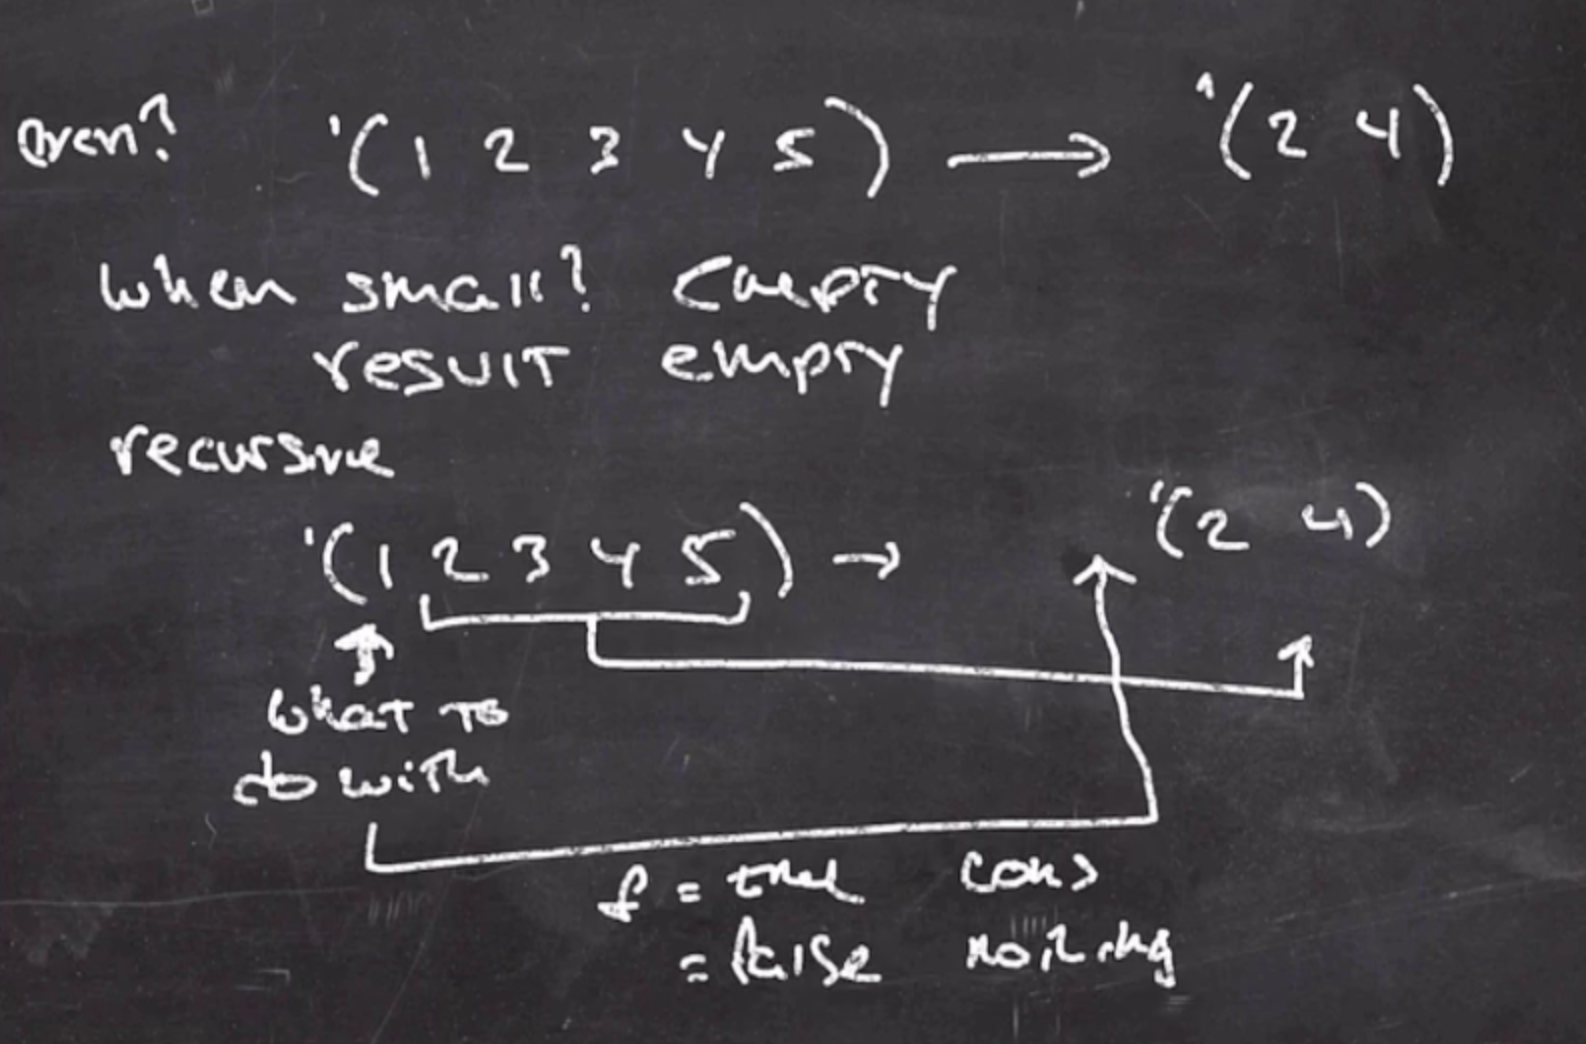 even? '(1 2 3 4 5) → '(2 4)
when small? empty
result empty
recursive
'(1 2 3 4 5) → '(2 4)
what to
do with
f = true cons
= false nothing